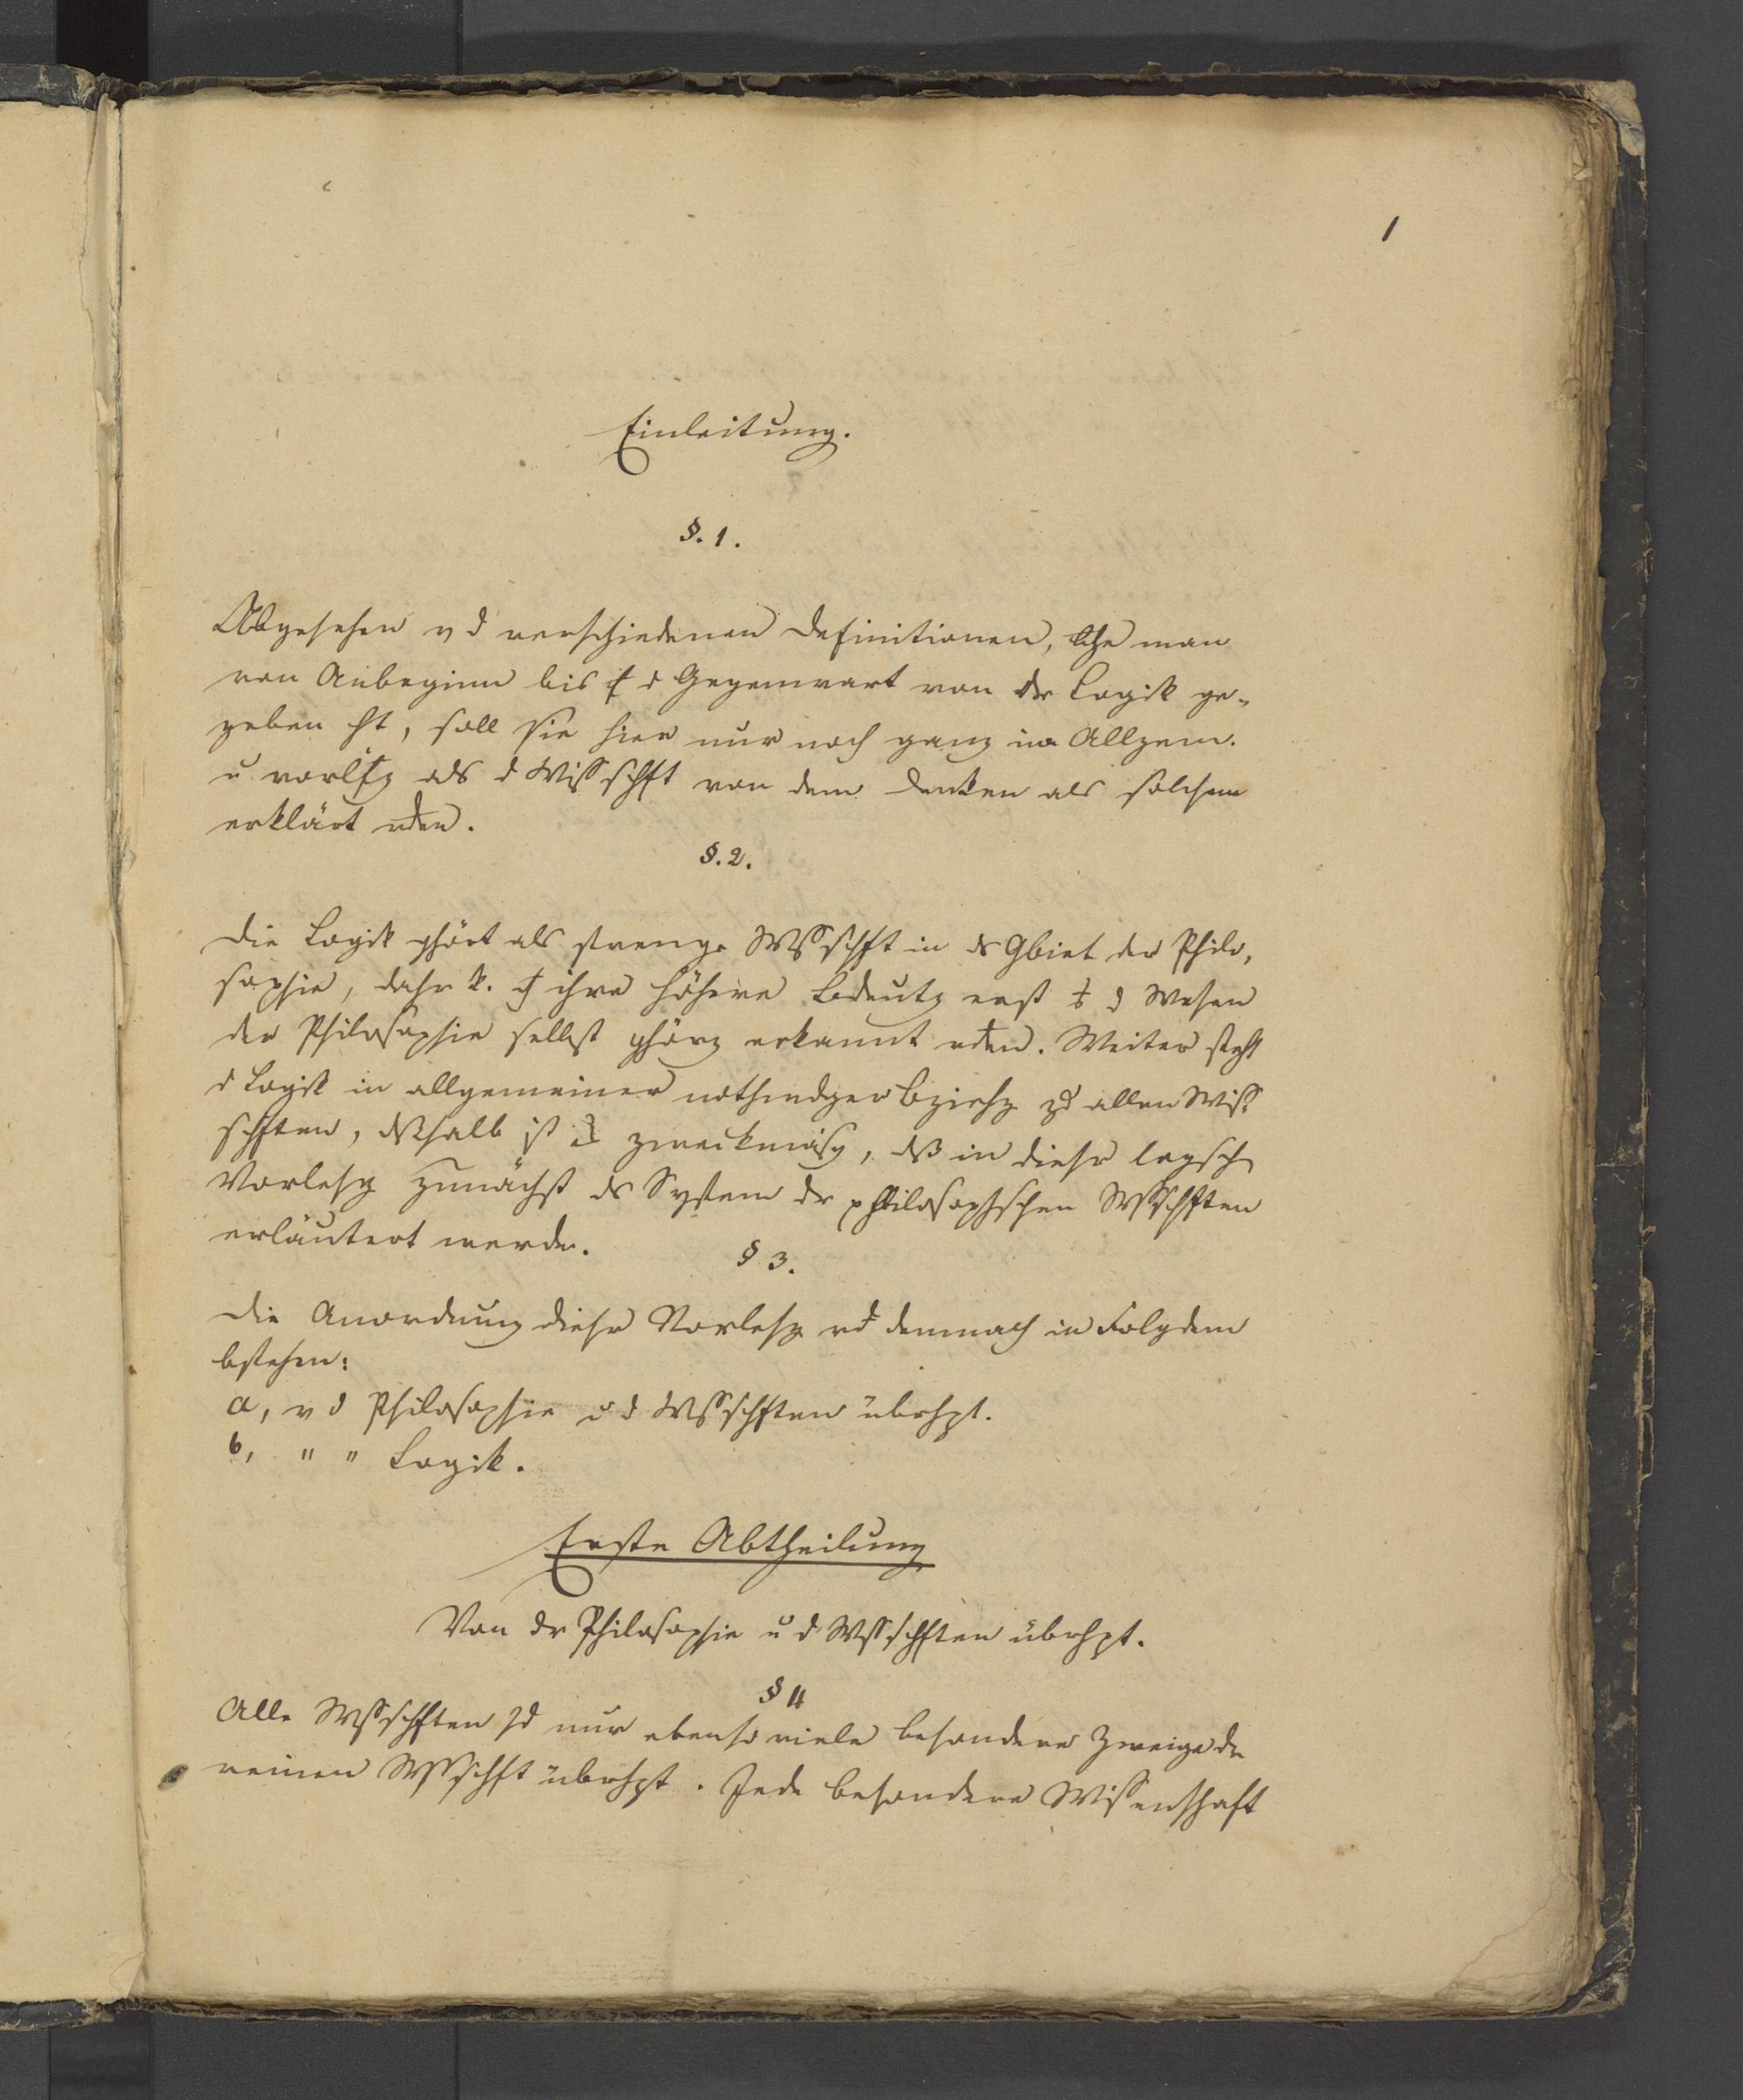 1
Einleitung.
§. 1.
Abgesehen v d verschiedenen Definitionen, lche man
von Anbeginn bis d Gegenwart von der Logik ge-
geben ht, soll sie hier nur noch ganz im Allgem.
u vorlfg als d Wissschft von dem Denken als solchem
erklärt rden.
§. 2.
Die Logik ghört als strenge Wssschft in ds Gbiet der Philo-
sophie, daher k. ihre höhere Bedeutg erst d Wesen
der Philosophie selbst ghörg erkannt rden. Weiter steht
d Logik in allgemeiner nothwndger Bziehg zu allen Wiss-
schften, dßhalb ist es zweckmäsg, dß in dieser logsch
Vorlesg zunächst ds System dr philosophschen Wssschften
erläutert werde.
§ 3.
Die Anordnung dieser Vorlesg rd demnach in Folgdem
bstehen:
a, v d Philosophie u d Wssschften überhpt.
b, " " Logik.
Erste Abtheilung
Von dr Philosophie u d Wssschften überhpt.
§ 4
Alle Wssschften sd nur ebenso viele besondere Zweige dr
reinen Wssschft überhpt. Jede besondere Wissenschaft